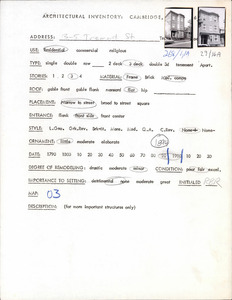 ARCHITECTURAL INVENTORY: CAMBRIDGE,
ADDRESS: 3-5 Tremont St
26/1A 27/16A
USE: Residential commercial religious
TYPE: single double row 2 deck 3 deck double 3d tenement Apart.
STORIES: 1 2 3 4 MATERIAL: Frame Brick
ROOF: gable front gable flank mansard flat hip
PLACEMENT: narrow to street broad to street square
ENTRANCE: flank front side front center
ORNAMENT: little moderate elaborate
DATE: 1790 1800 10 20 30 40 50 60 70 80 90 1900 10 20
DEGREE OF REMODELING: drastic moderate minor CONDITION: poor fair excel.
IMPORTANCE TO SETTING: detrimental none moderate great INITIALED
MAP: 03
DESCRIPTION: (for more important structures only)